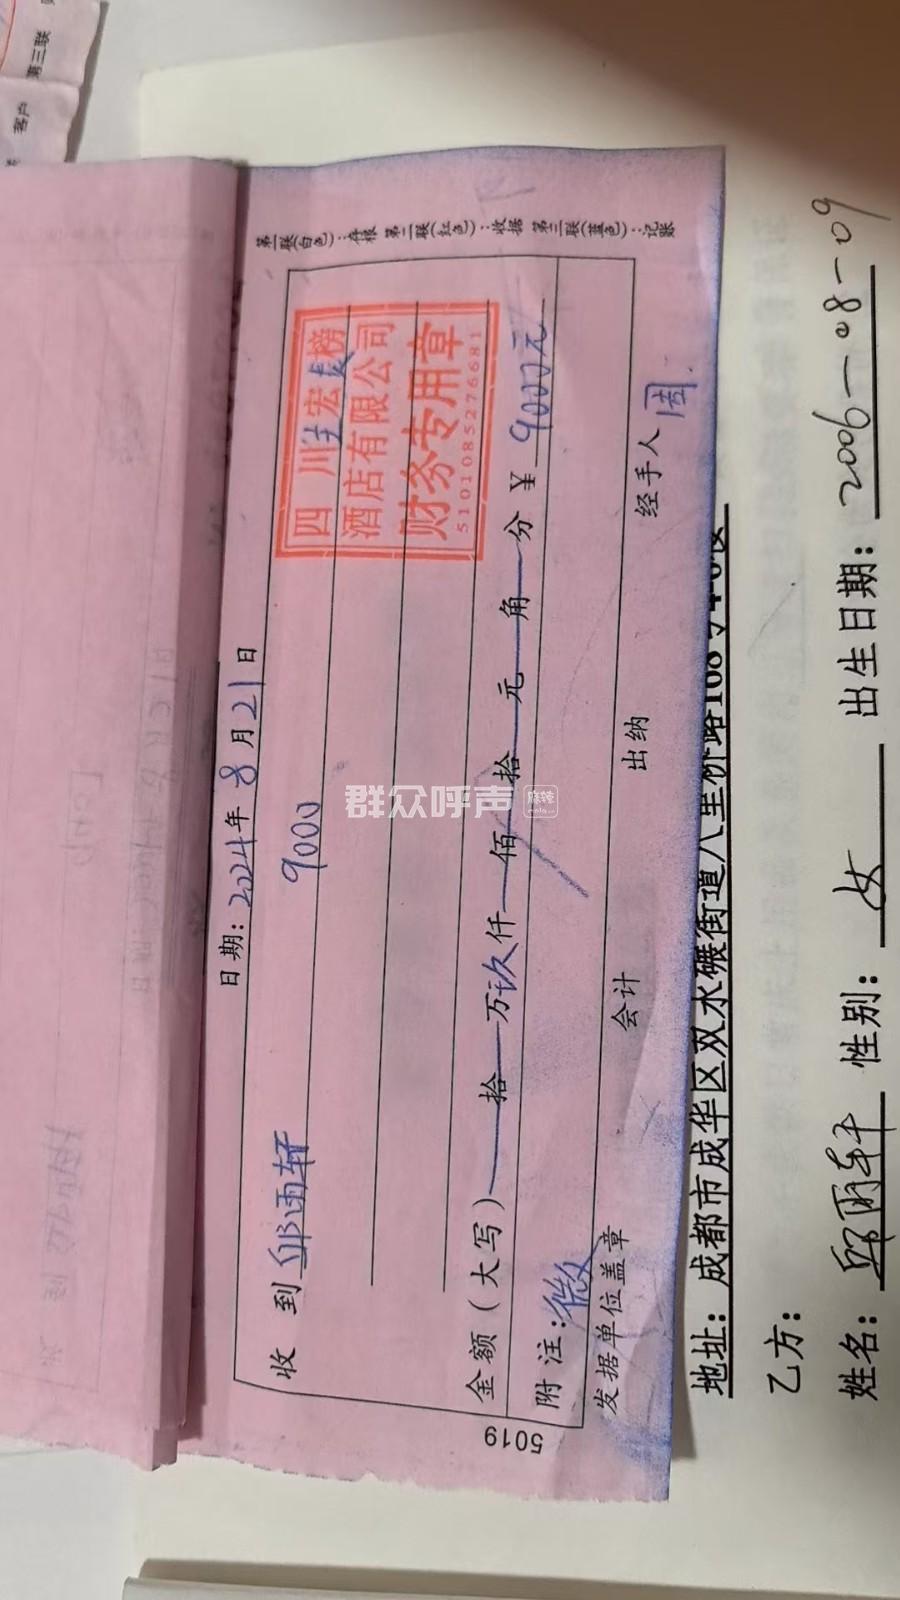 第三联
客户
第一联(白色):存根 第二联(红色):收据 第三联(蓝色):记账
日期:2024年8月21日
收 到 邱雨轩 9000
四川宏榜
酒店有限公司
财务专用章
5101085276681
金额(大写) 拾 万 玖 仟 佰 拾 元 角 分 ¥ 9000元
附注:微
发据单位盖章 会计 出纳 经手人 周
5019
群众呼声
麻辣
地址:成都市成华区双水碾街道八里桥路168号
乙方:
姓名: 邱雨轩 性别: 女 出生日期: 2006-08-09